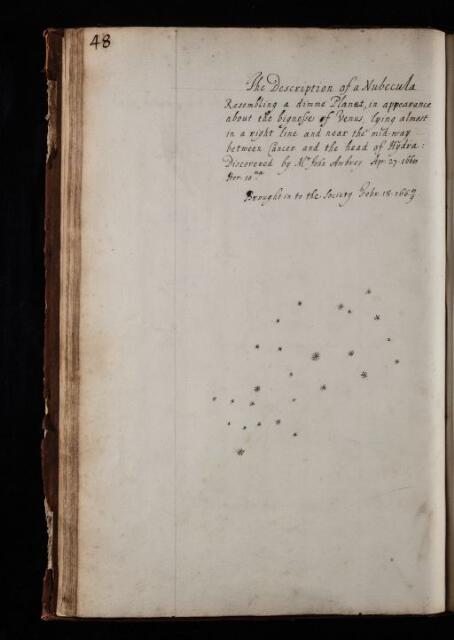 48
The Description of a Nubecula
Resembling a dimme Planet, in appearance
about the bignesse of Venus, lying almost
in a right line and near the mid-way
between Cancer and the head of Hydra:
Discovered by Mr John Aubrey Apr. 27. 1660
Hor. 10
Brought in to the Society Febr. 18.